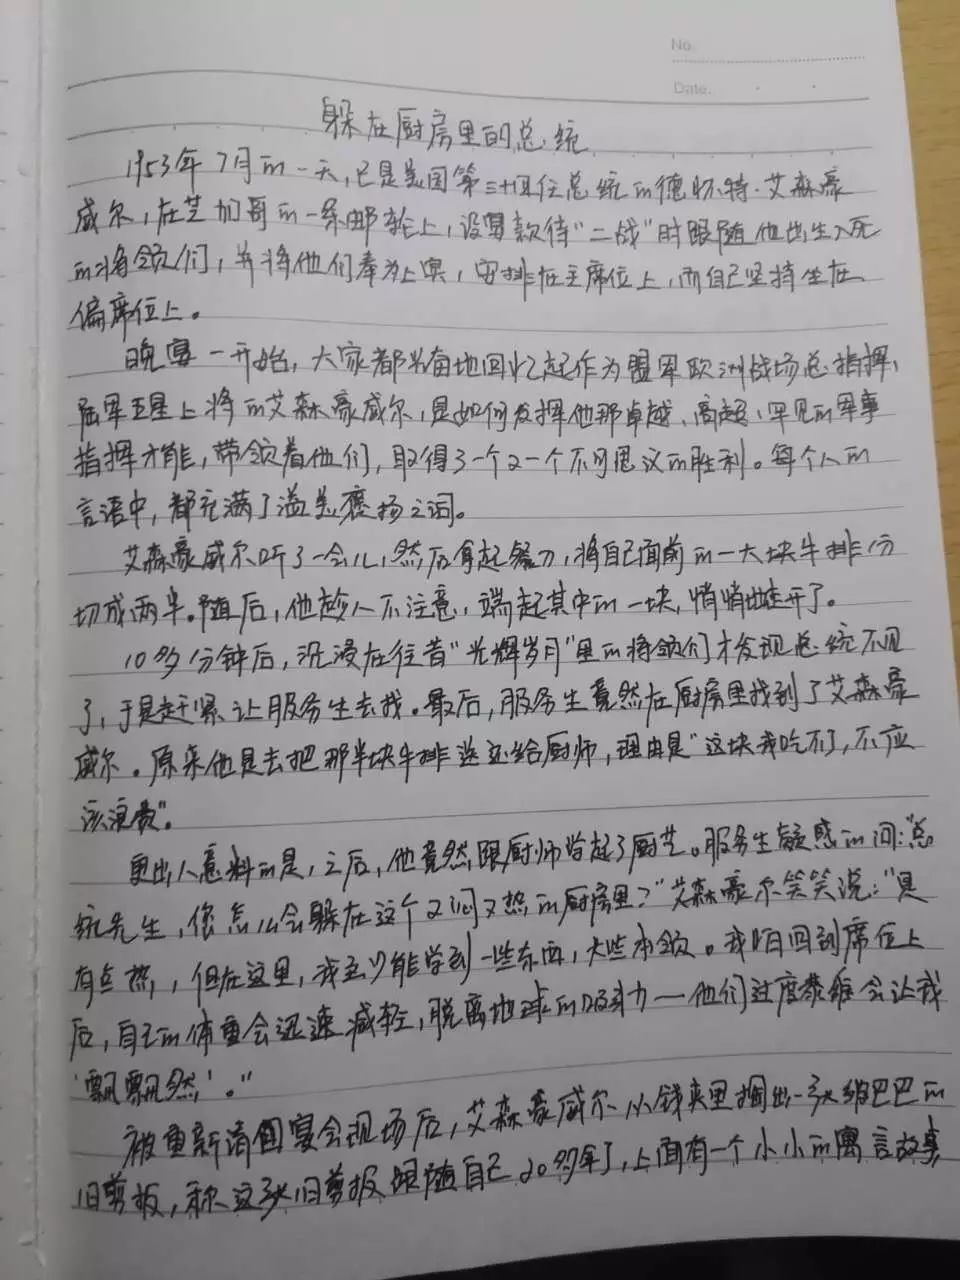 No.
Date.
躲在厨房里的总统
1953年7月的一天,已是美国第三十四任总统的德怀特·艾森豪
威尔,在芝加哥的一条邮轮上,设宴款待“二战”时跟随他出生入死
的将领们,并将他们奉为上宾,安排在主席位上,而自己坚持坐在
偏席位上。
晚宴一开始,大家都兴奋地回忆起作为盟军欧洲战场总指挥、
陆军五星上将的艾森豪威尔,是如何发挥他那卓越、高超、罕见的军事
指挥才能,带领着他们,取得了一个又一个不可思议的胜利。每个人的
言语中,都充满了溢美褒扬之词。
艾森豪威尔听了一会儿,然后拿起餐刀,将自己面前的一大块牛排分
切成两半。随后,他趁人不注意,端起其中的一块,悄悄地走开了。
10多分钟后,沉浸在往昔“光辉岁月”里的将领们才发现总统不见
了,于是赶紧让服务生去找。最后,服务生竟然在厨房里找到了艾森豪
威尔。原来他是去把那半块牛排送还给厨师,理由是“这块我吃不了,不应
该浪费”。
更出人意料的是,之后,他竟然跟厨师学起了厨艺。服务生疑惑的问:“总
统先生,您怎么会躲在这个又闷又热的厨房里?”艾森豪尔笑笑说:“是
有点热,但在这里,我至少能学到一些东西,长些本领。我怕回到席位上
后,自己的体重会迅速减轻,脱离地球的吸引力——他们过度恭维会让我
‘飘飘然’。”
被重新请回宴会现场后,艾森豪威尔从钱夹里掏出一张皱巴巴的
旧剪报,称这张旧剪报跟随自己20多年了,上面有一个小小的寓言故事